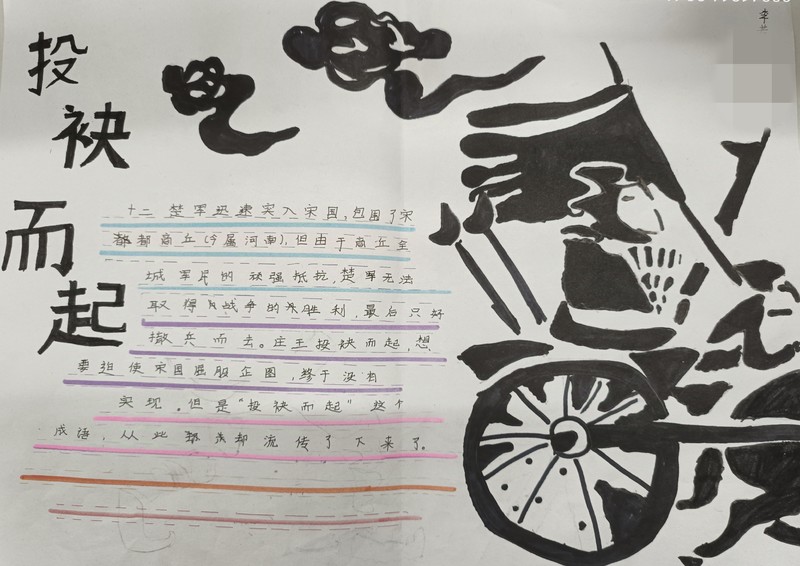 投袂而起
十二 楚军迅速突入宋国,包围了宋
都商丘(今属河南),但由于商丘全
城军民的顽强抵抗,楚军无法
取得战争的胜利,最后只好
撤兵而去。庄王投袂而起,想
要迫使宋国屈服企图,终于没有
实现。但是“投袂而起”这个
成语,从此却流传了下来了。
李